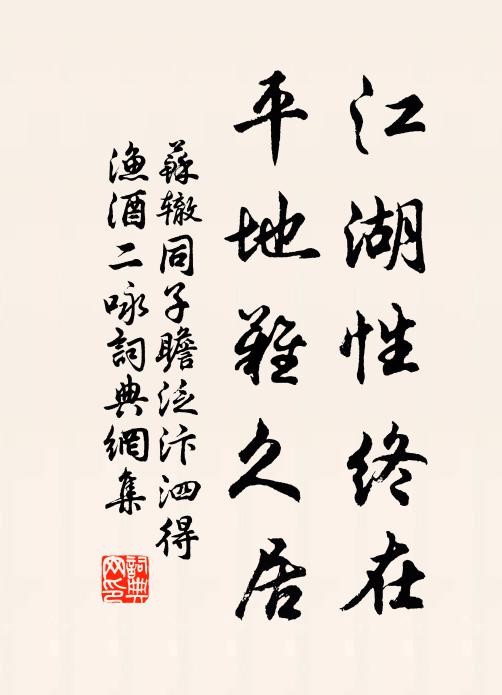 江湖性终在
平地難久居
蘇辙同子瞻泛汴泗得
漁酒二咏詞典網集
詞典
网印